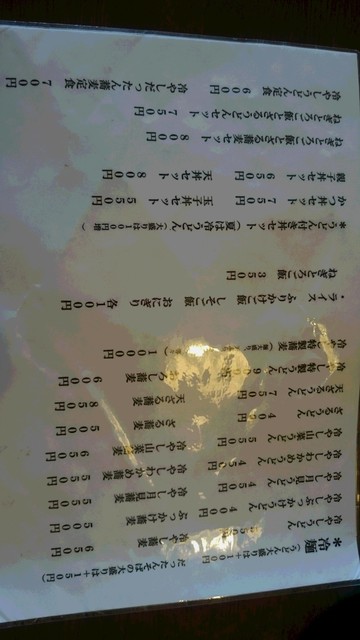 *冷麺 (うどん大盛り+100円
だったんそばの大盛りは+150円)
冷やしうどん 冷やし蕎麦
冷やしぶっかけうどん 400 ぶっかけ蕎麦 500円
冷やし月見うどん 450 冷やし月見蕎麦 550円
冷やしわかめうどん 450 冷やしわかめ蕎麦 550円
冷やし山菜うどん 550円 冷やし山菜蕎麦 650円
ざるうどん 400 ざる蕎麦 500円
天ざるうどん 750円 天ざる蕎麦 850円
冷やし特製うどん 900円 おろし蕎麦 600円
冷やし特製蕎麦 1000円
・ライス ふりかけご飯 しそご飯 おにぎり 各100円
ねぎとろご飯 350円
*うどん付き丼セット (夏は冷うどん)(大盛りは100円増)
かつ丼セット 750円 玉子丼セット 550円
親子丼セット 650円 天丼セット 800円
ねぎとろご飯とざる蕎麦セット 800円
ねぎとろご飯とざるうどんセット 750円
冷やしうどん定食 600円 冷やしだったん蕎麦定食 700円